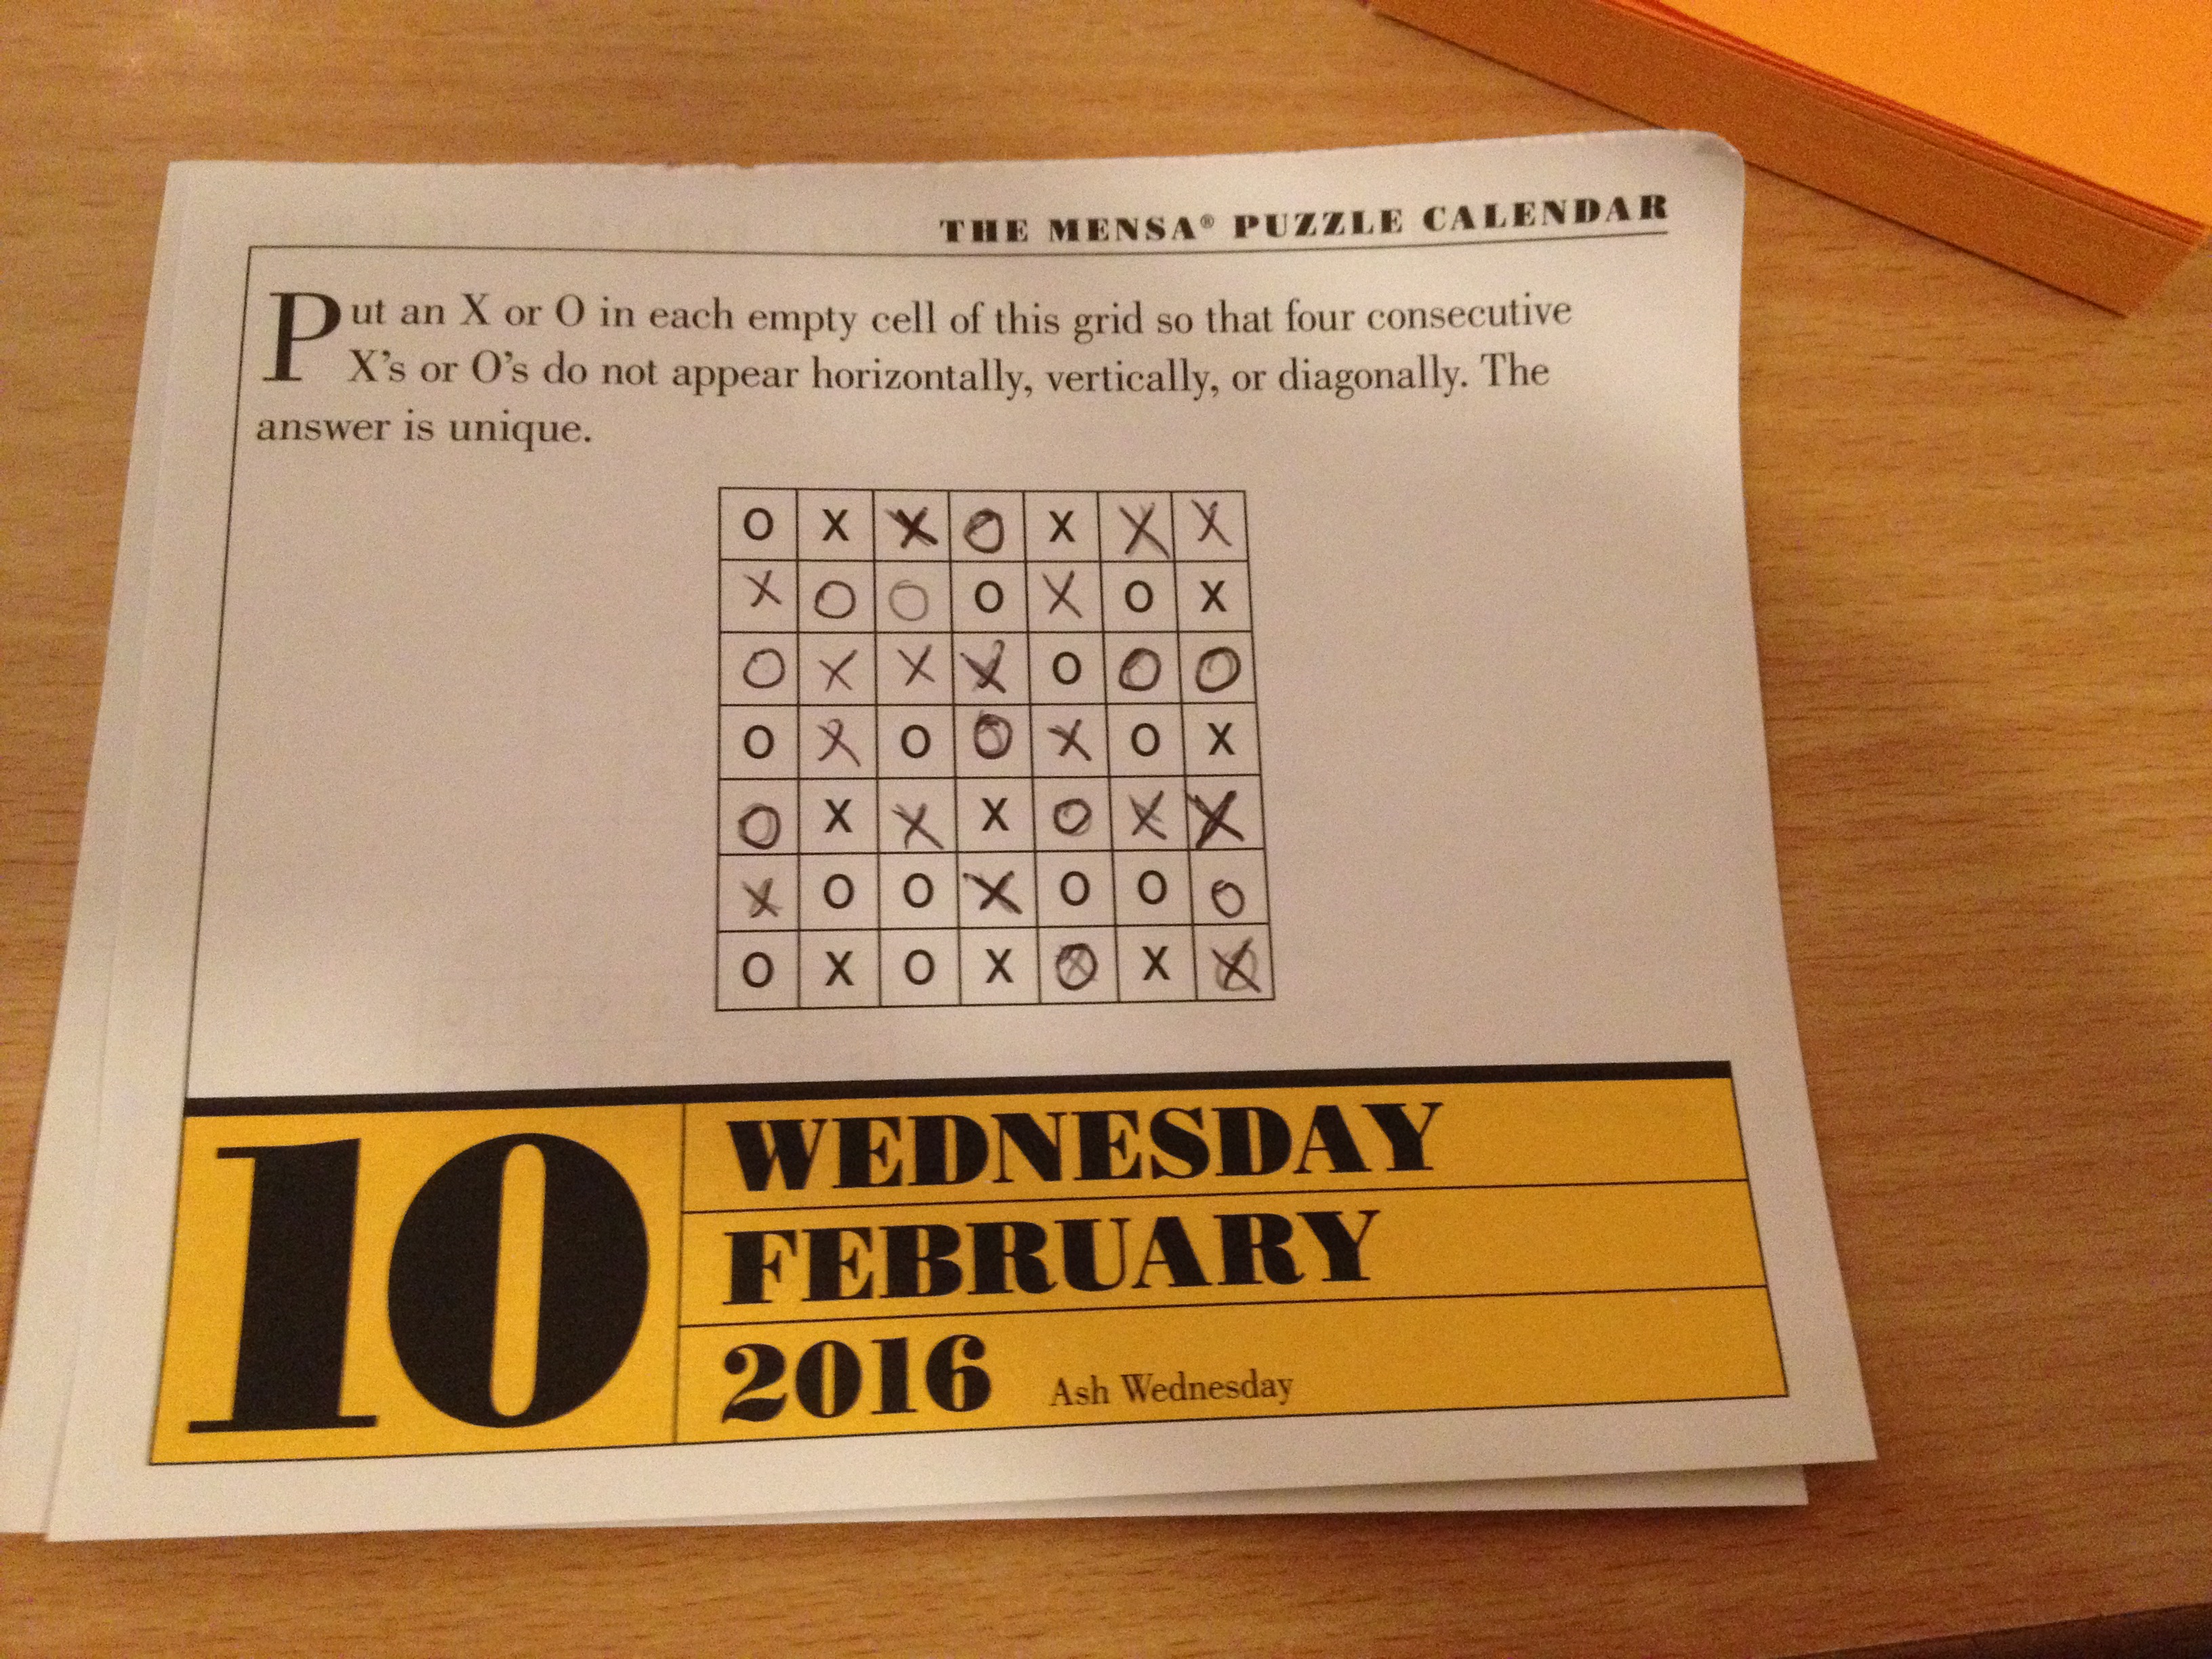 THE MENSA® PUZZLE CALENDAR
Put an X or O in each empty cell of this grid so that four consecutive
X's or O's do not appear horizontally, vertically, or diagonally. The
answer is unique.
O X X O X X X
X O O O X O X
O X X X O O O
O X O O X O X
O X X X O X X
X O O X O O O
O X O X O X X
10
WEDNESDAY
FEBRUARY
2016 Ash Wednesday